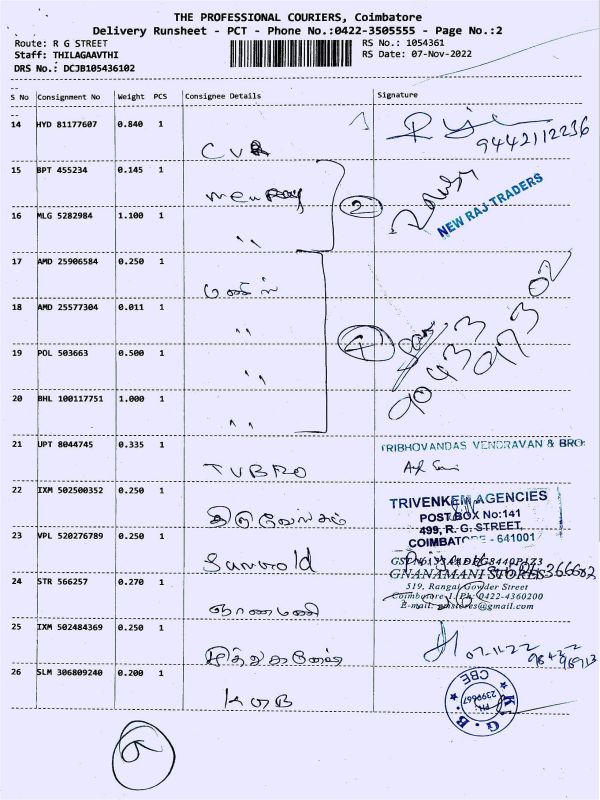 THE PROFESSIONAL COURIERS, Coimbatore
Delivery Runsheet - PCT - Phone No.:0422-3505555 - Page No.:2
Route: R G STREET
Staff: THILAGAAVTHI
DRS No.: DCJB105436102
RS No.: 1054361
RS Date: 07-Nov-2022
S No Consignment No Weight PCS Consignee Details Signature
14 HYD 81177607 0.840 1
9442112236
CVR
15 BPT 455234 0.145 1
2
NEW RAJ TRADERS
16 MLG 5282984 1.100 1
''
17 AMD 25906584 0.250 1
18 AMD 25577304 0.011 1
''
4
90433
97302
19 POL 503663 0.500 1
''
20 BHL 100117751 1.000 1
''
21 UPT 8044745 0.335 1
TRIBHOVANDAS VENDRAVAN & BRO
TVBRO
22 IXM 502500352 0.250 1
TRIVENKEM AGENCIES
POST BOX No:141
499, R. G. STREET,
COIMBATORE - 641001
23 VPL 520276789 0.250 1
24 STR 566257 0.270 1
GNANAMANI STORES
519, Rangai Gowder Street
Coimbatore 1. Ph: 0422-4360200
E-mail: gmstores@gmail.com
ஞானமணி
25 IXM 502484369 0.250 1
26 SLM 306809240 0.200 1
KGB
K. G. B.
CBE
PH
2399667